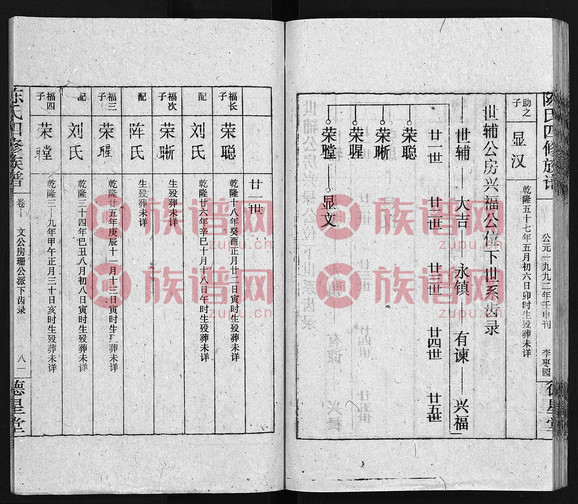 陈氏四修族谱
公元一九九二年壬申刊
德星堂
助之子
显汉
乾隆五十七年五月初六日卯时生殁葬未详
世辅公房兴福公位下世系齿录
世辅 大吉 永镇 有谏 兴福
廿一世 廿二世 廿三世 廿四世 廿五世
荣聪
荣晰
荣腥
荣瞠 显文
廿一世
福长子
荣聪
乾隆十八年癸酉正月廿二日寅时生殁葬未详
配
刘氏
乾隆廿六年辛巳十月十八日午时生殁葬未详
福次子
荣晰
生殁葬未详
配
陈氏
生殁葬未详
福三子
荣腥
乾隆廿五年庚辰十一月十三日寅时生殁葬未详
配
刘氏
乾隆三十四年己丑八月初八日寅时生殁葬未详
福四子
荣瞠
乾隆三十九年甲午正月三十日亥时生殁葬未详
陈氏四修族谱
文公房珊公派下齿录
八一
德星堂
族谱网
族谱网